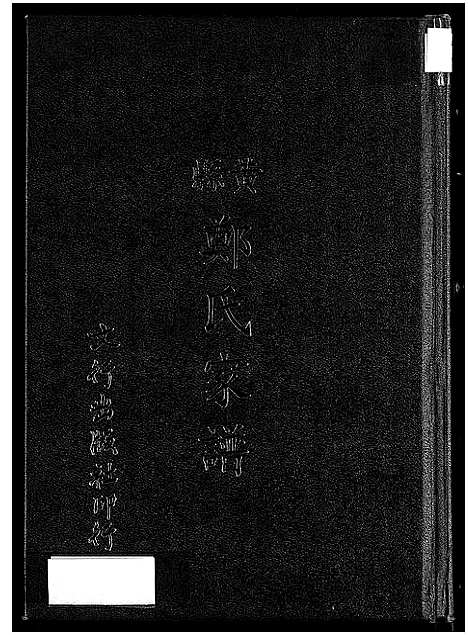 黃縣
鄭氏家譜
文行出版社印行